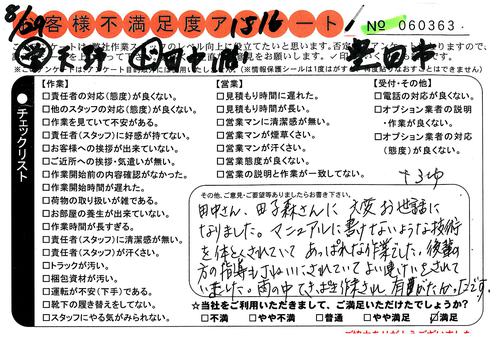 8/29 お客様不満足度アンケート 1816 No 060363
豊田市
チェックリスト
【作業】
□責任者の対応(態度)が良くない。
□他のスタッフの対応(態度)が良くない。
□作業を見ていて不安がある。
□責任者(スタッフ)に好感が持てない。
□お客様への挨拶が出来ていない。
□ご近所への挨拶・気遣いが無い。
□作業開始前の内容確認がなかった。
□作業開始時間が遅れた。
□荷物の取り扱いが雑である。
□お部屋の養生が出来ていない。
□作業時間が長すぎる。
□責任者(スタッフ)に清潔感が無い。
□責任者(スタッフ)が汗くさい。
□トラックが汚い。
□梱包資材が汚い。
□運転が不安(下手)である。
□靴下の履き替えをしてない。
□スタッフにやる気がみられない。
【営業】
□見積もり時間に遅れた。
□見積もり時間が長い。
□営業マンに清潔感が無い。
□営業マンが煙草くさい。
□営業マンが汗くさい。
□営業態度が良くない。
□営業の説明と作業が一致してない。
【受付・その他】
□電話の対応が良くない。
□オプション業者の説明
・作業が良くない。
□オプション業者の対応
(態度)が良くない。
その他、ご意見・ご要望等ありましたらお書き下さい。
田中さん、田子森さんに大変お世話に
なりました。マニュアルに書けないような技術
を体とくされていて あっぱれな作業でした。後輩の
方の指導もきれいにされていてよい連けいをされて
いました。雨の中でき
★当社をご利用いただきまして、ご満足いただけたでしょうか?
□不満 □やや不満 □普通 □やや満足 ☑満足